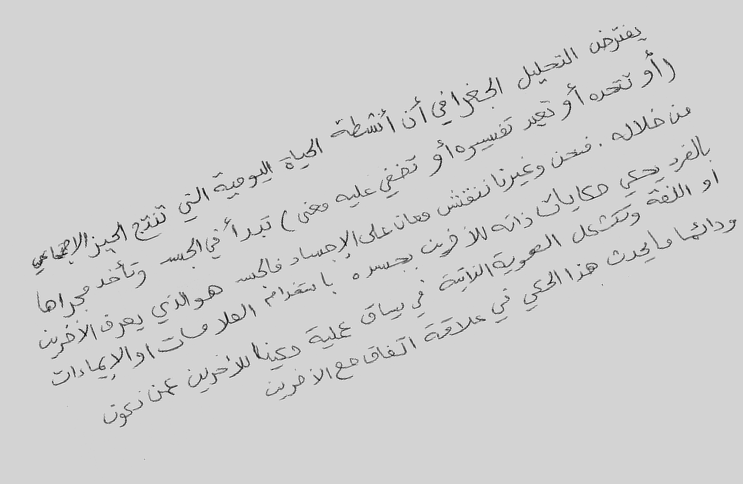 يفترض التحليل الجغرافي أن أنشطة الحياة اليومية التي تنتج الحيز الاجتماعي
(أو تتحده أو تعيد تفسيره أو تضفي عليه معنى) تبدأ في الجسد وتأخذ مجراها
من خلاله . فنحن وغيرنا ننقش معان على الاجساد فالجسد هو الذي يعرف الآخرين
بالفرد يحكي حكايات ذاته للآخرين بجسده باستخدام العلامات او الإيماءات
او اللغة وتتشكل الهوية الذاتية في سياق عملية حكينا للآخرين عمن نكون
ودائما ما يحدث هذا الحكي في علاقة اتفاق مع الآخرين